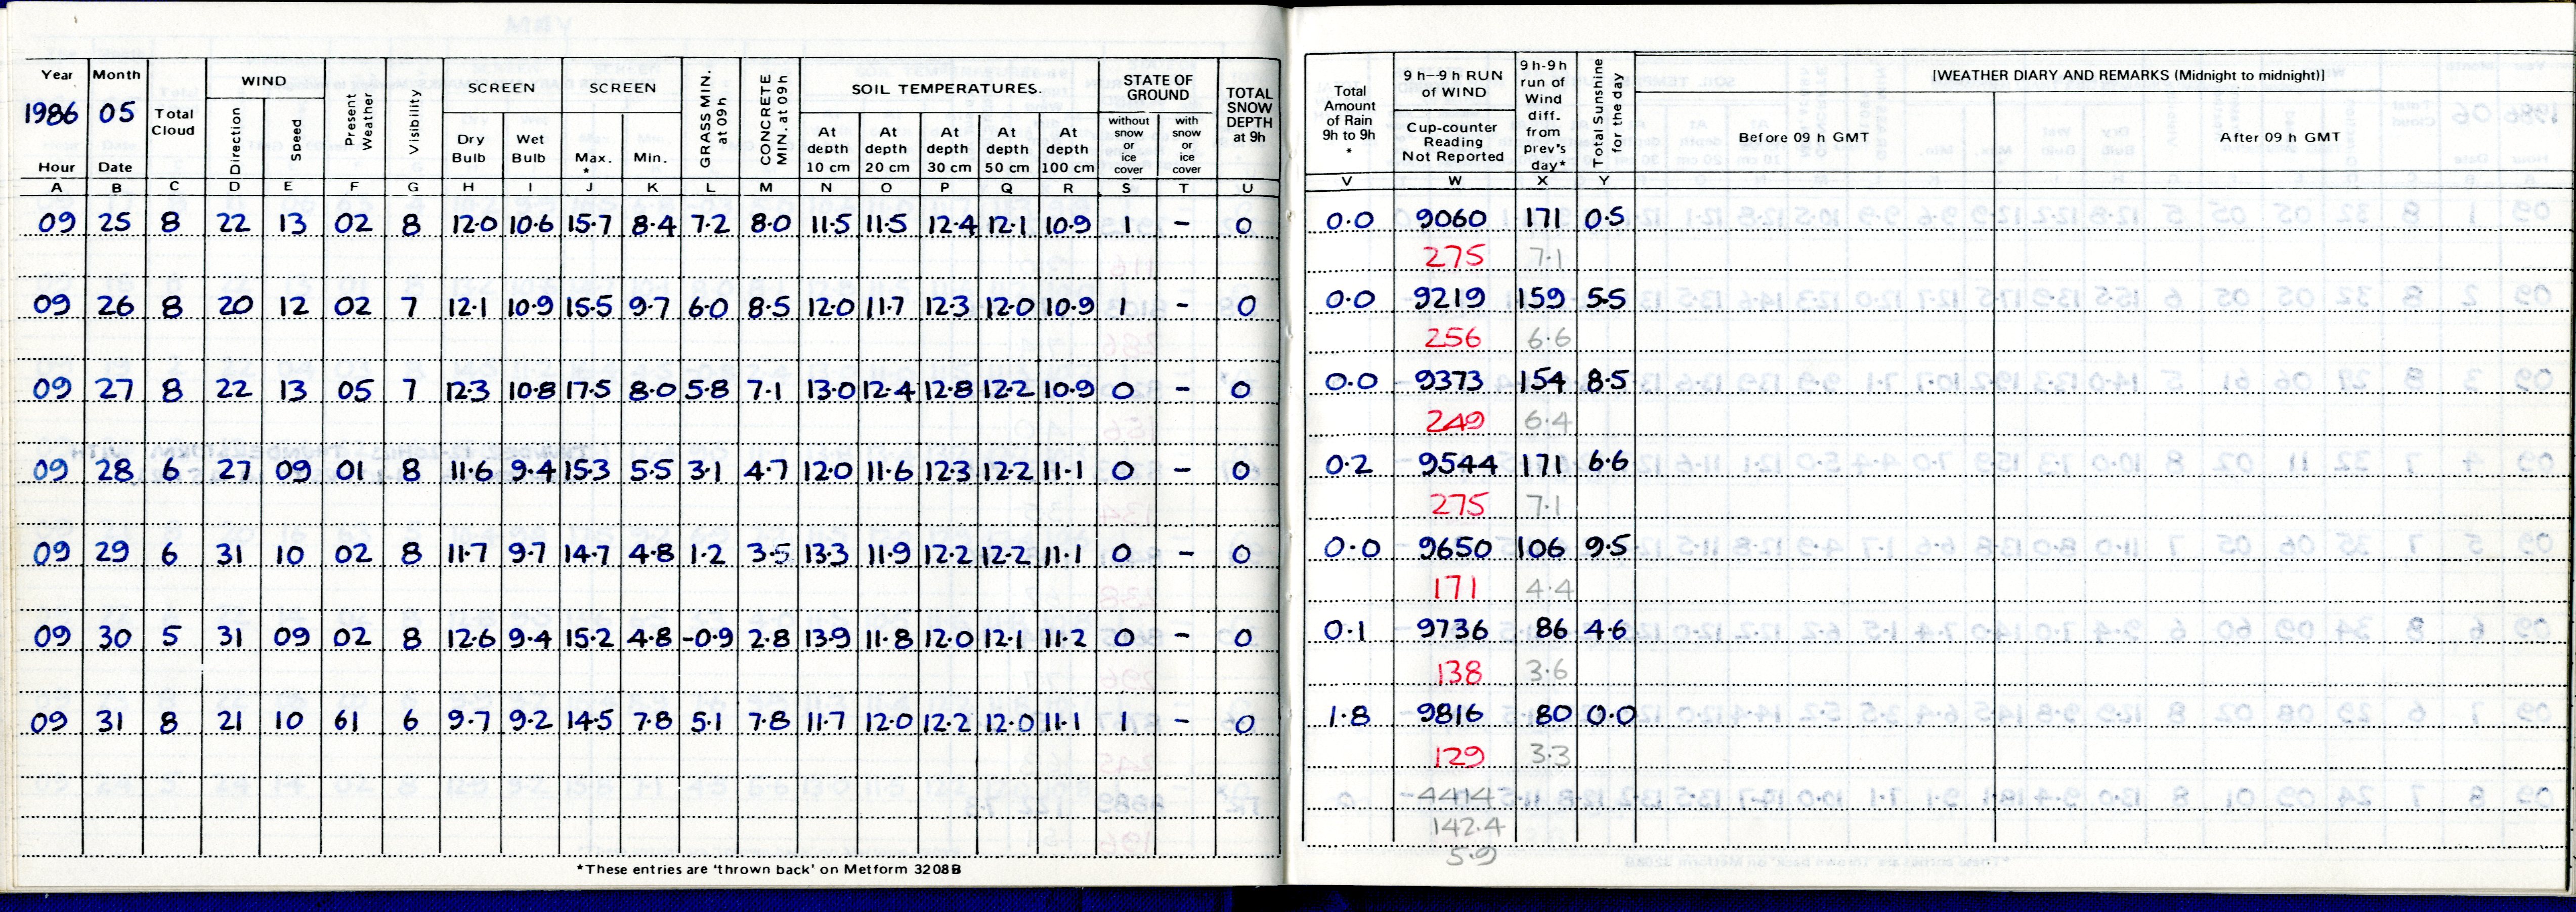 Year Month WIND SCREEN SCREEN SOIL TEMPERATURES. STATE OF GROUND
1986 05 Total Cloud Direction Speed Present Weather Visibility Dry Bulb Wet Bulb Max. * Min. GRASS MIN. at 09h CONCRETE MIN. at 09h At depth 10 cm At depth 20 cm At depth 30 cm At depth 50 cm At depth 100 cm without snow or ice cover with snow or ice cover TOTAL SNOW DEPTH at 9h
Hour Date
A B C D E F G H I J K L M N O P Q R S T U
09 25 8 22 13 02 8 12.0 10.6 15.7 8.4 7.2 8.0 11.5 11.5 12.4 12.1 10.9 1 - 0
09 26 8 20 12 02 7 12.1 10.9 15.5 9.7 6.0 8.5 12.0 11.7 12.3 12.0 10.9 1 - 0
09 27 8 22 13 05 7 12.3 10.8 17.5 8.0 5.8 7.1 13.0 12.4 12.8 12.2 10.9 0 - 0
09 28 6 27 09 01 8 11.6 9.4 15.3 5.5 3.1 4.7 12.0 11.6 12.3 12.2 11.1 0 - 0
09 29 6 31 10 02 8 11.7 9.7 14.7 4.8 1.2 3.5 13.3 11.9 12.2 12.2 11.1 0 - 0
09 30 5 31 09 02 8 12.6 9.4 15.2 4.8 -0.9 2.8 13.9 11.8 12.0 12.1 11.2 0 - 0
09 31 8 21 10 61 6 9.7 9.2 14.5 7.8 5.1 7.8 11.7 12.0 12.2 12.0 11.1 1 - 0
*These entries are 'thrown back' on Metform 3208B
Total Amount of Rain 9h to 9h * 9 h–9 h RUN of WIND Cup-counter Reading Not Reported 9 h-9h run of Wind diff. from prev's day* Total Sunshine for the day [WEATHER DIARY AND REMARKS (Midnight to midnight)]
Before 09 h GMT After 09 h GMT
V W X Y
0.0 9060 171 0.5
275 7.1
0.0 9219 159 5.5
256 6.6
0.0 9373 154 8.5
249 6.4
0.2 9544 171 6.6
275 7.1
0.0 9650 106 9.5
171 4.4
0.1 9736 86 4.6
138 3.6
1.8 9816 80 0.0
129 3.3
4414
142.4
5.9